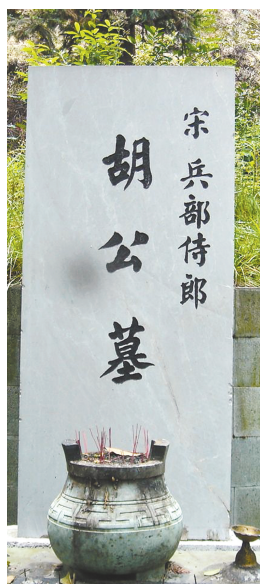 宋 兵部侍郎
胡公墓